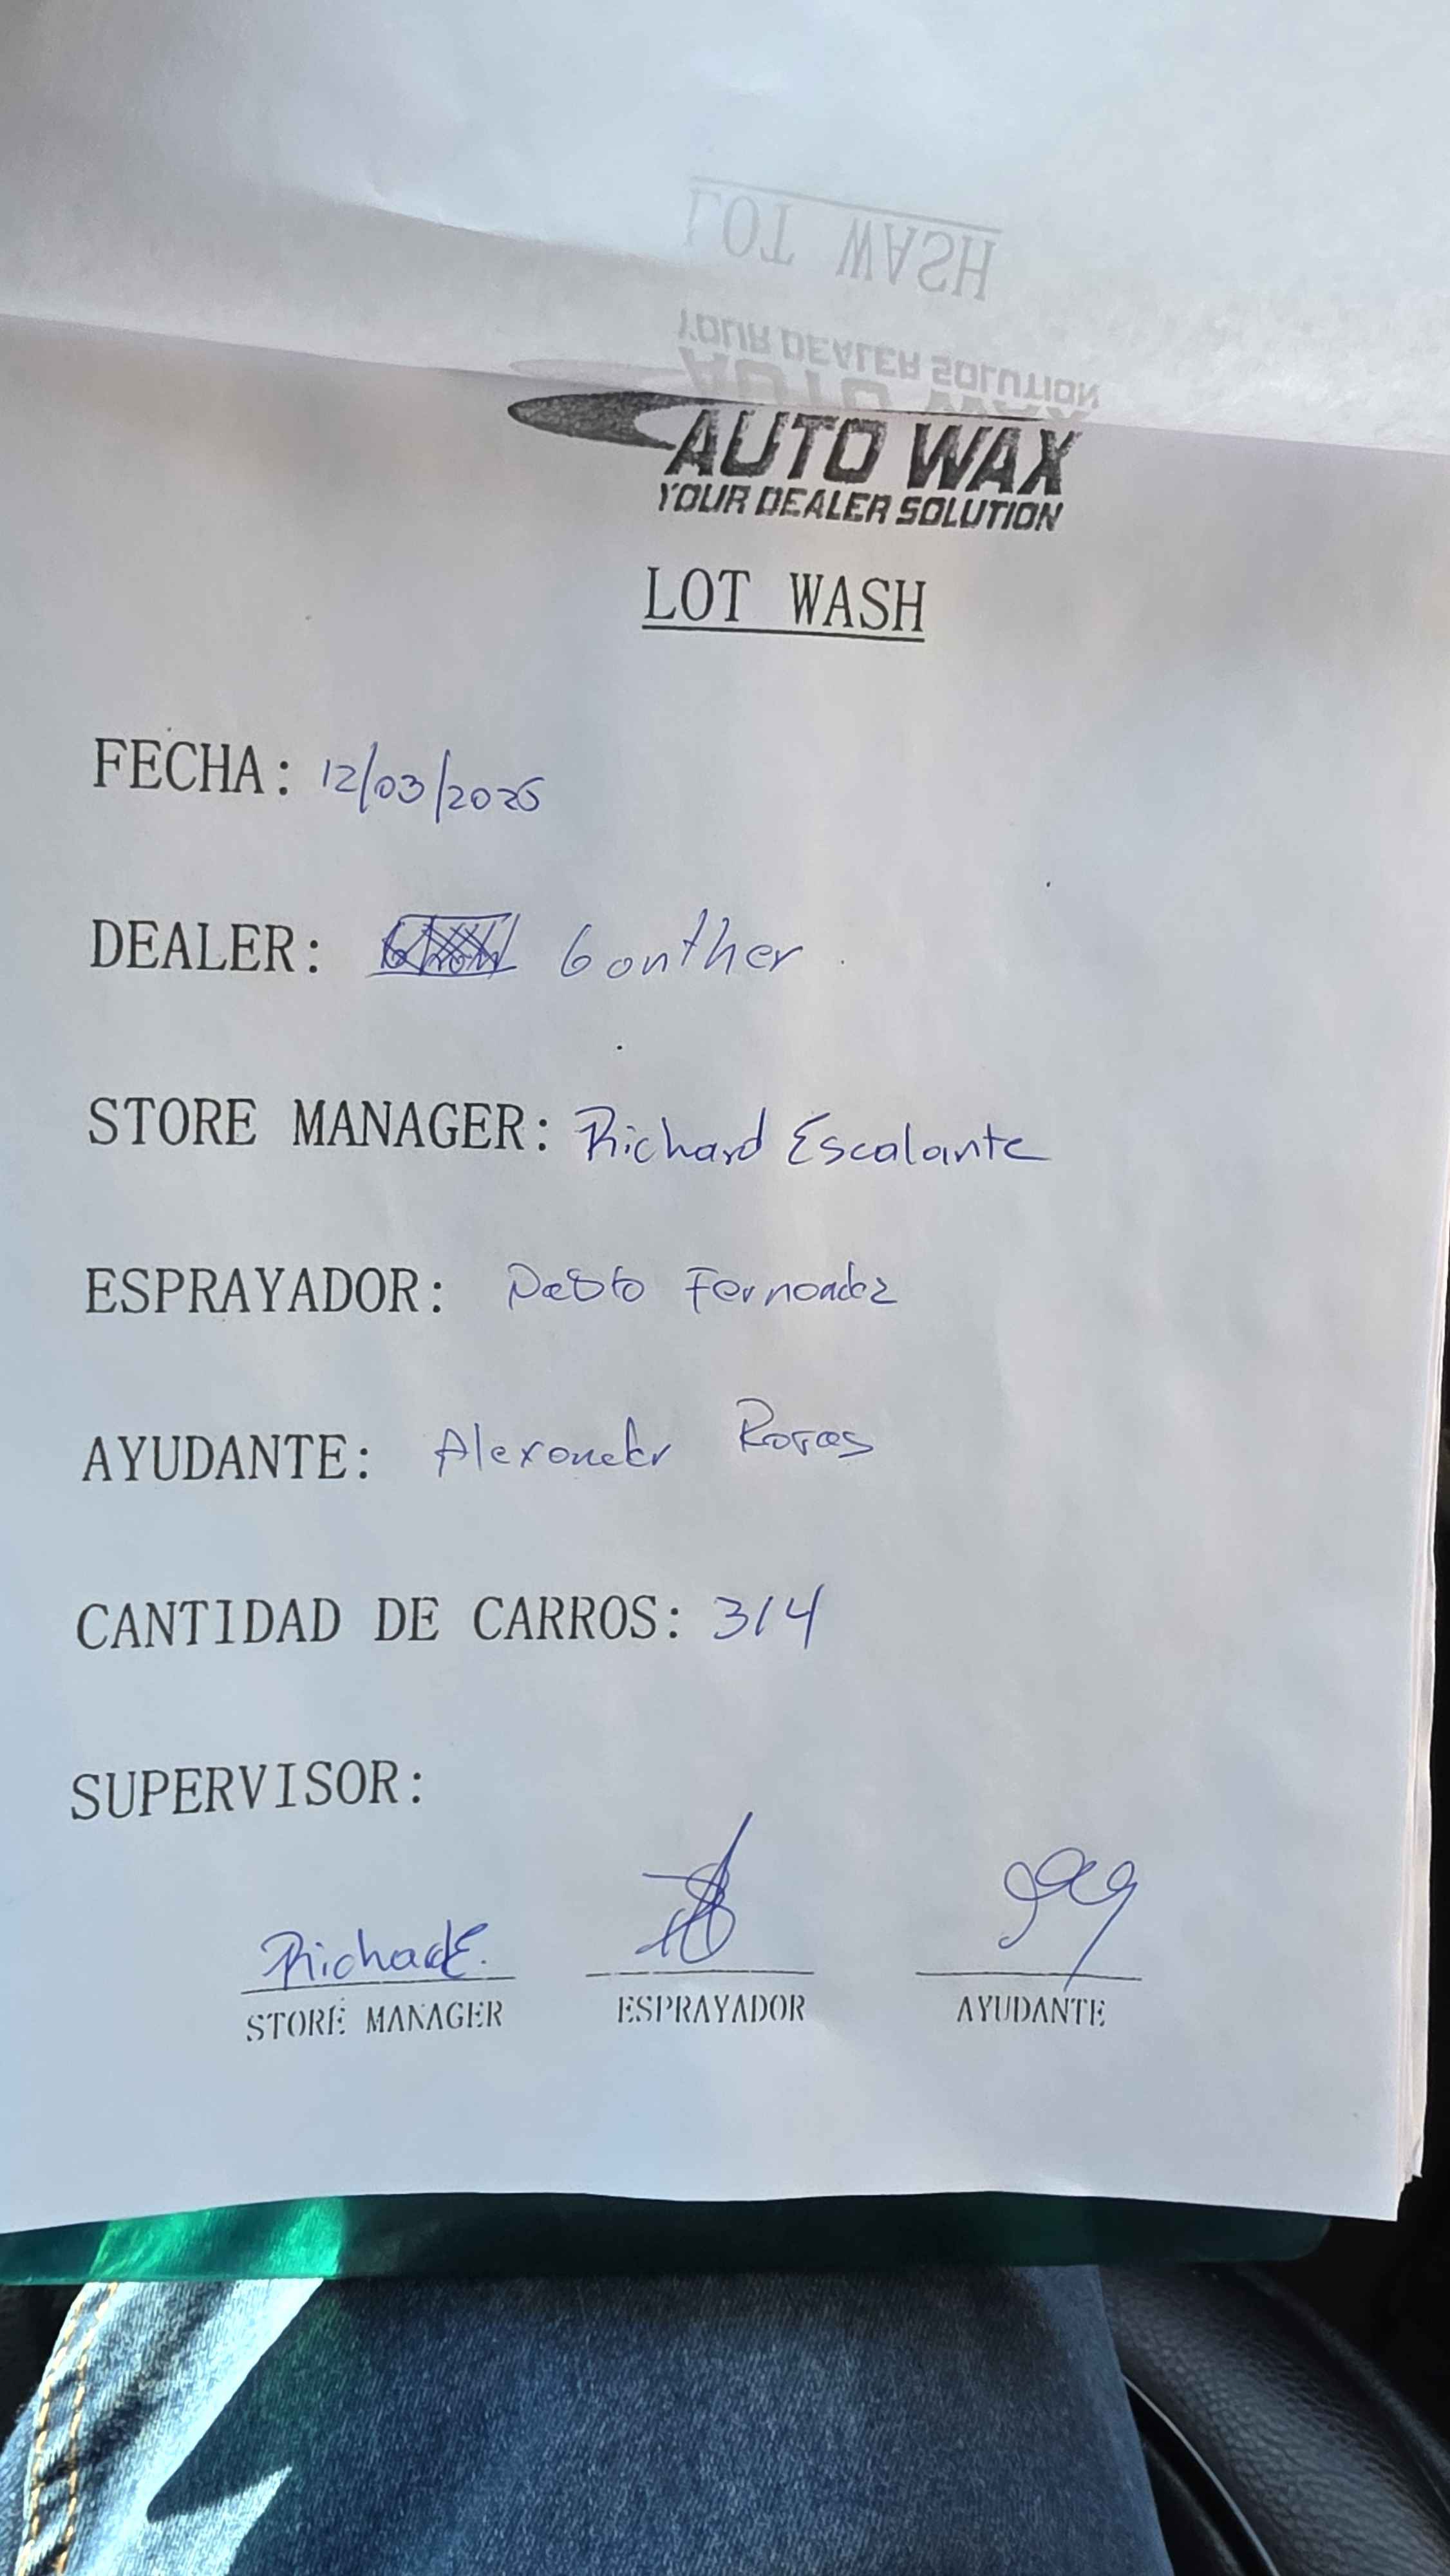 LOT WASH
YOUR DEALER SOLUTION
AUTO WAX
AUTO WAX
YOUR DEALER SOLUTION
LOT WASH
FECHA: 12/03/2025
DEALER: Gonther
STORE MANAGER: Richard Escalante
ESPRAYADOR: Pablo Fernandez
AYUDANTE: Alexander Rojas
CANTIDAD DE CARROS: 314
SUPERVISOR:
Richard E.
STORE MANAGER ESPRAYADOR AYUDANTE